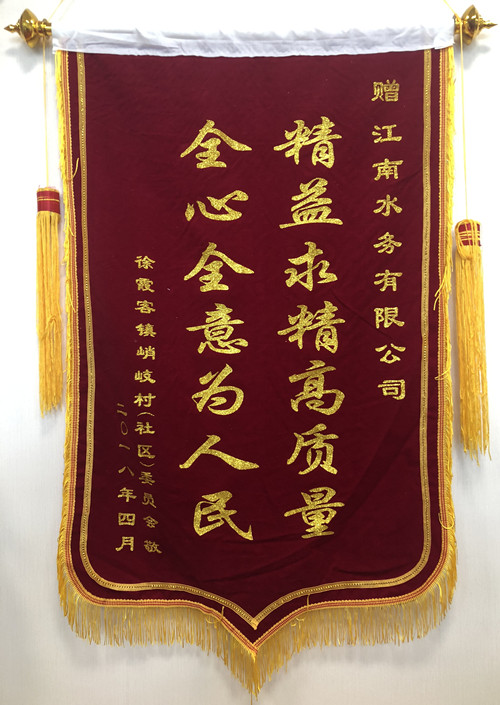 赠江南水务有限公司
精益求精高质量
全心全意为人民
徐霞客镇峭岐村(社区)委员会敬
二〇一八年四月